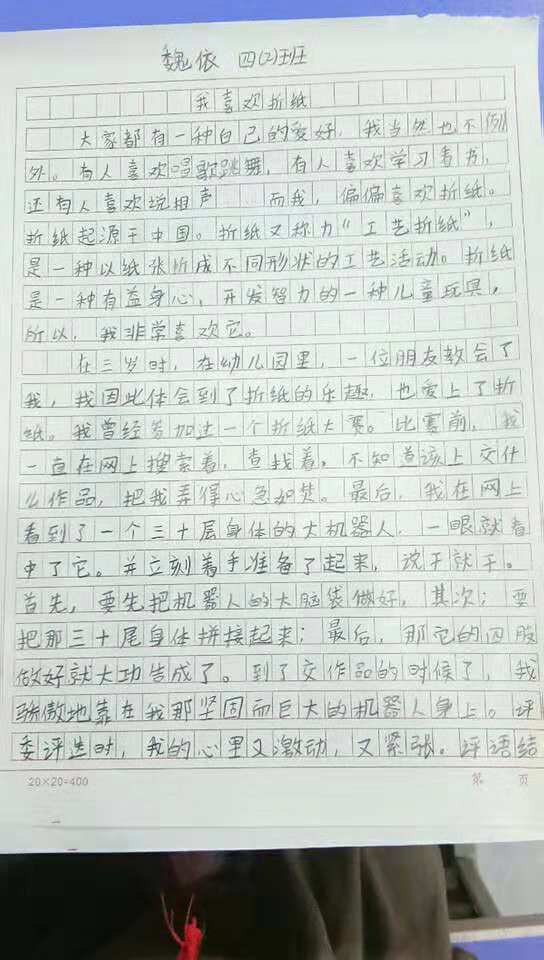 魏依 四(2)班
我喜欢折纸
大家都有一种自己的爱好,我当然也不例
外。有人喜欢唱歌跳舞,有人喜欢学习看书,
还有人喜欢说相声 而我,偏偏喜欢折纸。
折纸起源于中国。折纸又称为“工艺折纸”,
是一种以纸张折成不同形状的工艺活动。折纸
是一种有益身心,开发智力的一种儿童玩具,
所以,我非常喜欢它。
在三岁时,在幼儿园里,一位朋友教会了
我,我因此体会到了折纸的乐趣,也爱上了折
纸。我曾经参加过一个折纸大赛。比赛前,我
一直在网上搜索着,查找着,不知道该上交什
么作品,把我弄得心急如焚。最后,我在网上
看到了一个三十层身体的大机器人,一眼就看
中了它。并立刻着手准备了起来,说干就干。
首先,要先把机器人的大脑袋做好,其次;要
把那三十尾身体拼接起来;最后,那它的四肢
做好就大功告成了。到了交作品的时候了,我
骄傲地靠在我那坚固而巨大的机器人身上。评
委评选时,我的心里又激动,又紧张。评语结
20×20=400
第 页